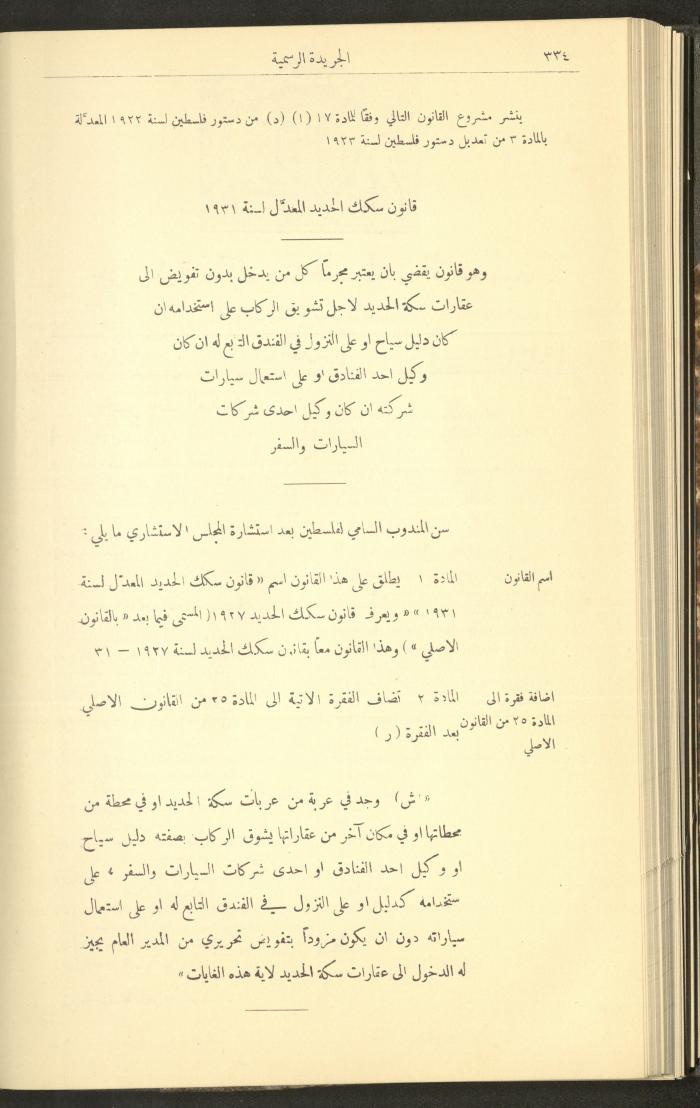 ٣٣٤
الجريدة الرسمية
ينشر مشروع القانون التالي وفقاً للمادة ١٧ (١) (د) من دستور فلسطين لسنة ١٩٢٢ المعدَّلة
بالمادة ٣ من تعديل دستور فلسطين لسنة ١٩٢٣
قانون سكك الحديد المعدَّل لسنة ١٩٣١
وهو قانون يقضي بان يعتبر مجرماً كل من يدخل بدون تفويض الى
عقارات سكة الحديد لاجل تشويق الركاب على استخدامه ان
كان دليل سياح او على النزول في الفندق التابع له ان كان
وكيل احد الفنادق او على استعمال سيارات
شركته ان كان وكيل احدى شركات
السيارات والسفر
سن المندوب السامي لفلسطين بعد استشارة المجلس الاستشاري ما يلي :
اسم القانون
المادة ١ يطلق على هذا القانون اسم « قانون سكك الحديد المعدّل لسنة
١٩٣١ » « ويعرف قانون سكك الحديد ١٩٢٧ ( المسمى فيما بعد « بالقانون
الاصلي » ) وهذا القانون معاً بقانون سكك الحديد لسنة ١٩٢٧ – ٣١
اضافة فقرة الى
المادة ٢٥ من القانون
الاصلي
المادة ٢ تضاف الفقرة الاتية الى المادة ٢٥ من القانون الاصلي
بعد الفقرة ( ر )
« (ش) وجد في عربة من عربات سكة الحديد او في محطة من
محطاتها او في مكان آخر من عقاراتها يشوق الركاب بصفته دليل سياح
او وكيل احد الفنادق او احدى شركات السيارات والسفر ، على
ستخدامه كدليل او على النزول في الفندق التابع له او على استعمال
سياراته دون ان يكون مزوداً بتفويض تحريري من المدير العام يجيز
له الدخول الى عقارات سكة الحديد لاية هذه الغايات »